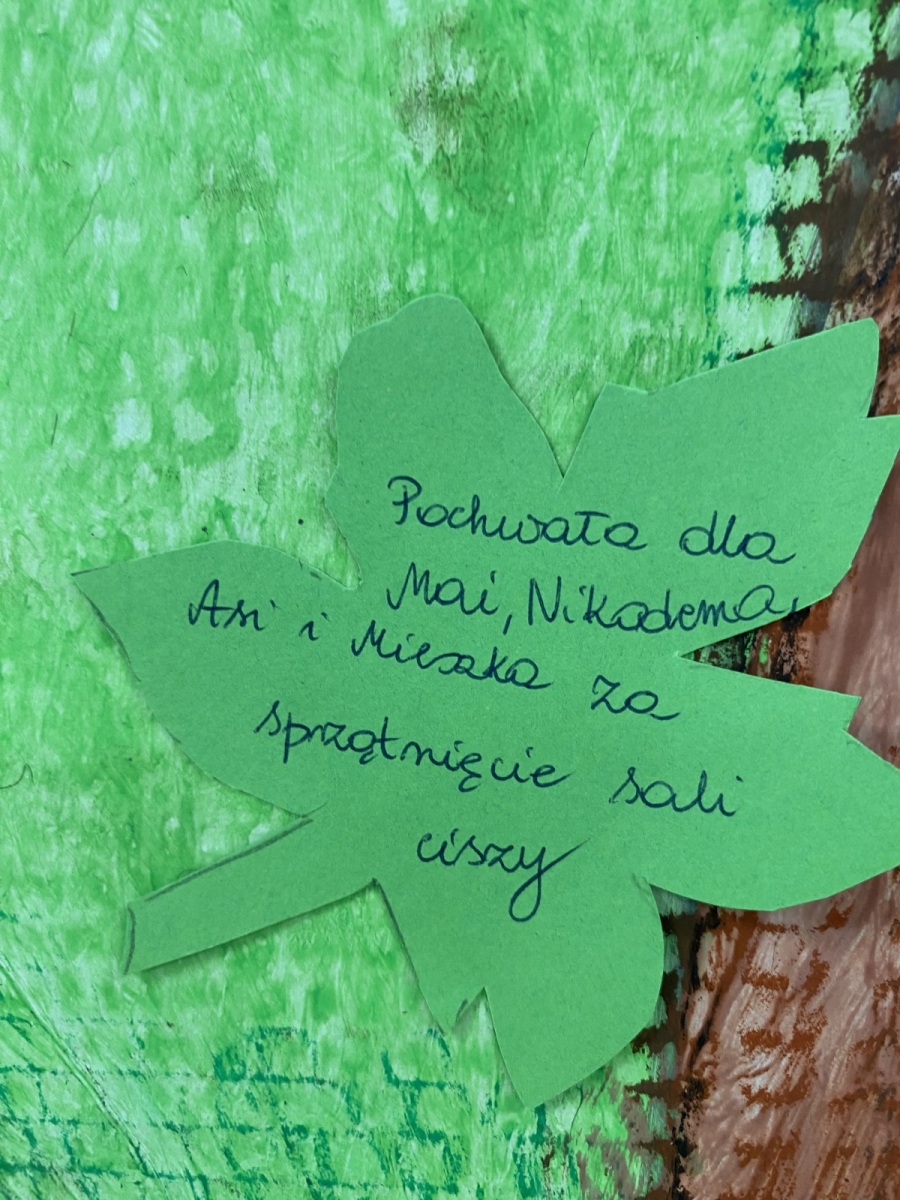 Pochwała dla
Mai, Nikodema,
Asi i Mieszka za
sprzątnięcie sali
ciszy